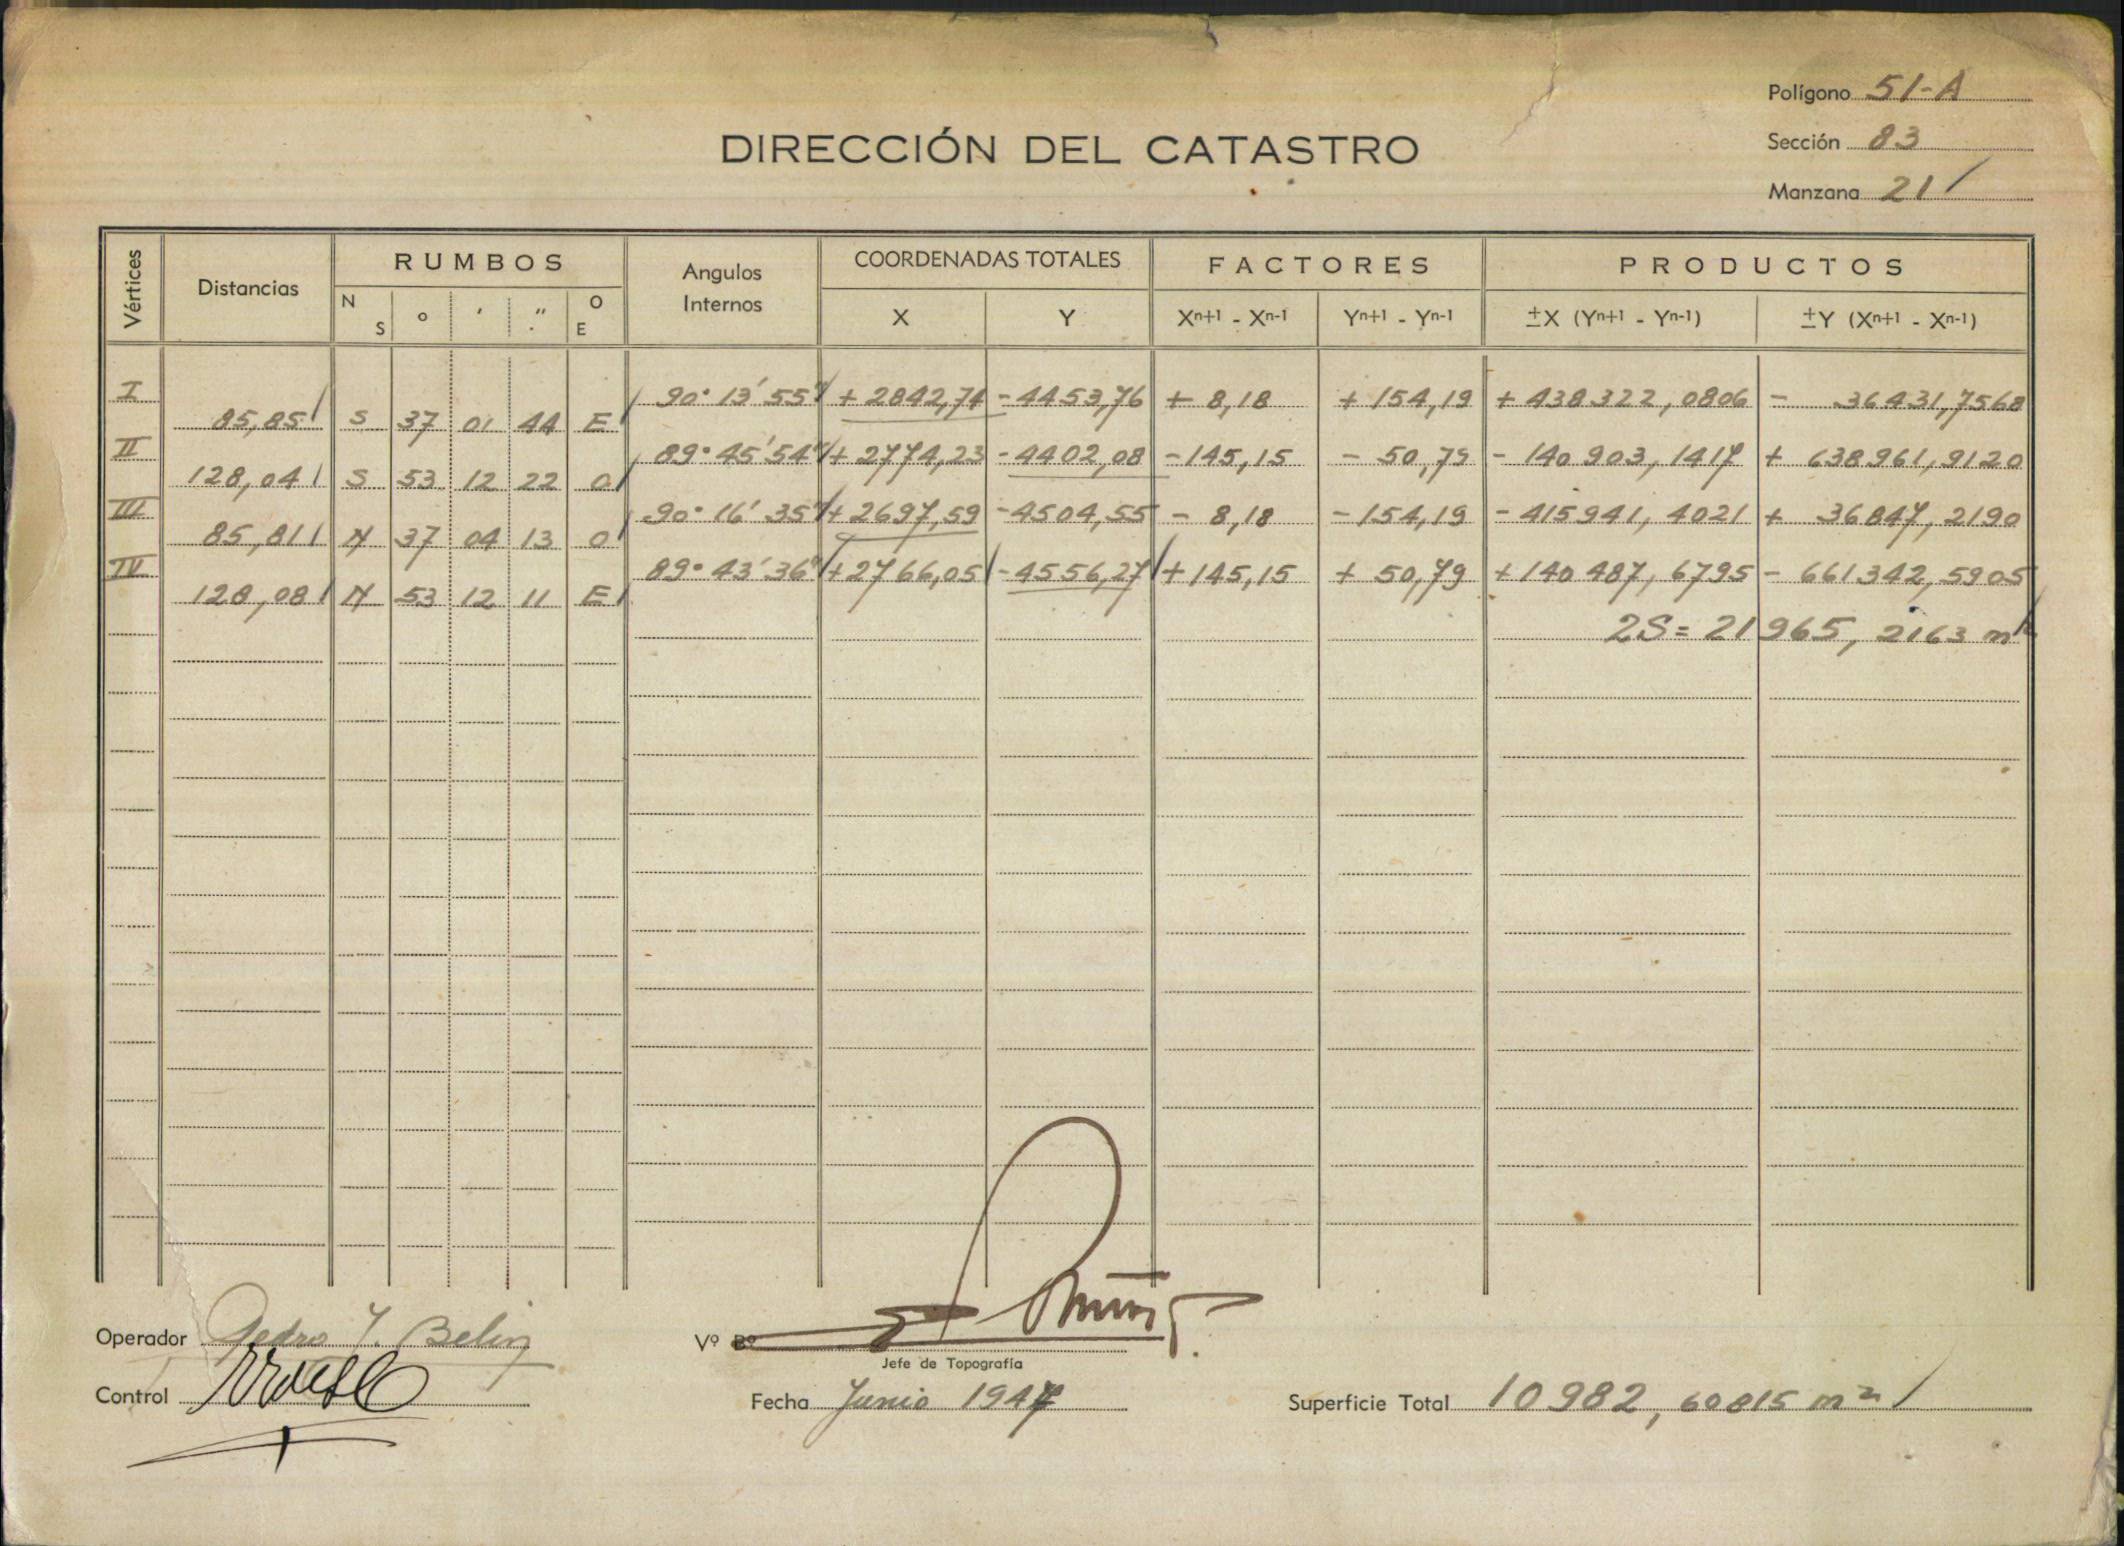 Polígono 51-A
DIRECCIÓN DEL CATASTRO
Sección 83
Manzana 21
Vértices Distancias RUMBOS Angulos Internos COORDENADAS TOTALES FACTORES PRODUCTOS
N S ° ' " O E X Y Xn+1 - Xn-1 Yn+1 - Yn-1 ±X (Yn+1 - Yn-1) ±Y (Xn+1 - Xn-1)
I 90° 13' 55" + 2842,74 - 4453,76 + 8,18 + 154,19 + 438322,0806 - 36431,7568
85,85 S 37 01 44 E
II 89° 45' 54" + 2774,23 - 4402,08 - 145,15 - 50,79 - 140903,1417 + 638961,9120
128,04 S 53 12 22 O
III 90° 16' 35" + 2697,59 - 4504,55 - 8,18 - 154,19 - 415941,4021 + 36847,2190
85,81 N 37 04 13 O
IV 89° 43' 36" + 2766,05 - 4556,27 + 145,15 + 50,79 + 140487,6795 - 661342,5905
128,08 N 53 12 11 E
2S = 21965,2163 m²
Operador Pedro
Vº Bº
Jefe de Topografía
Control
Fecha Junio 1947
Superficie Total 10982,60815 m²